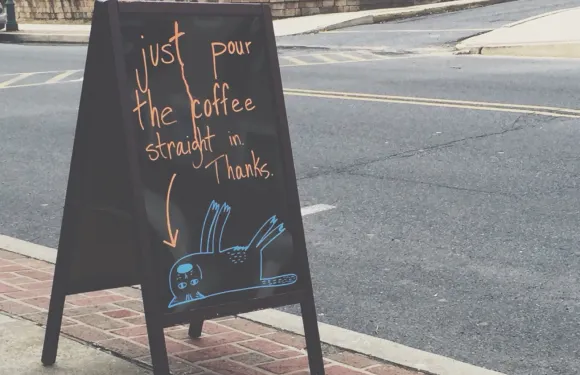 just pour
the coffee
straight in.
Thanks.